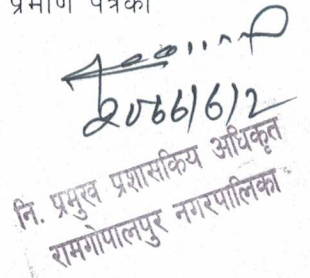 प्रमाण पत्रको
2066/6/2
नि. प्रमुख प्रशासकिय अधिकृत
रामगोपालपुर नगरपालिका